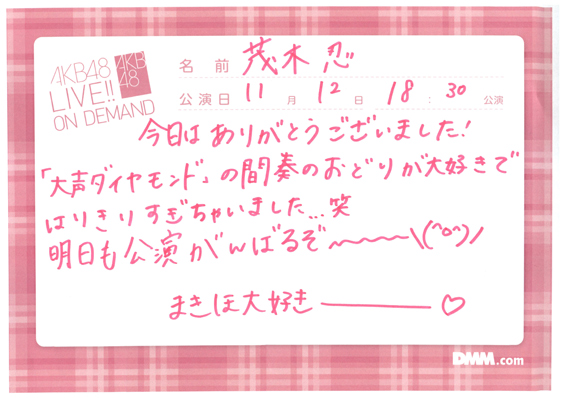 AKB48
LIVE!!
ON DEMAND
AKB
48
名前 茂木忍
公演日 11月12日 18:30公演
今日はありがとうございました!
「大声ダイヤモンド」の間奏のおどりが大好きで
はりきりすぎちゃいました...笑
明日も公演がんばるぞ〜〜〜〜\(^o^)/
まきほ大好き————♡
DMM.com